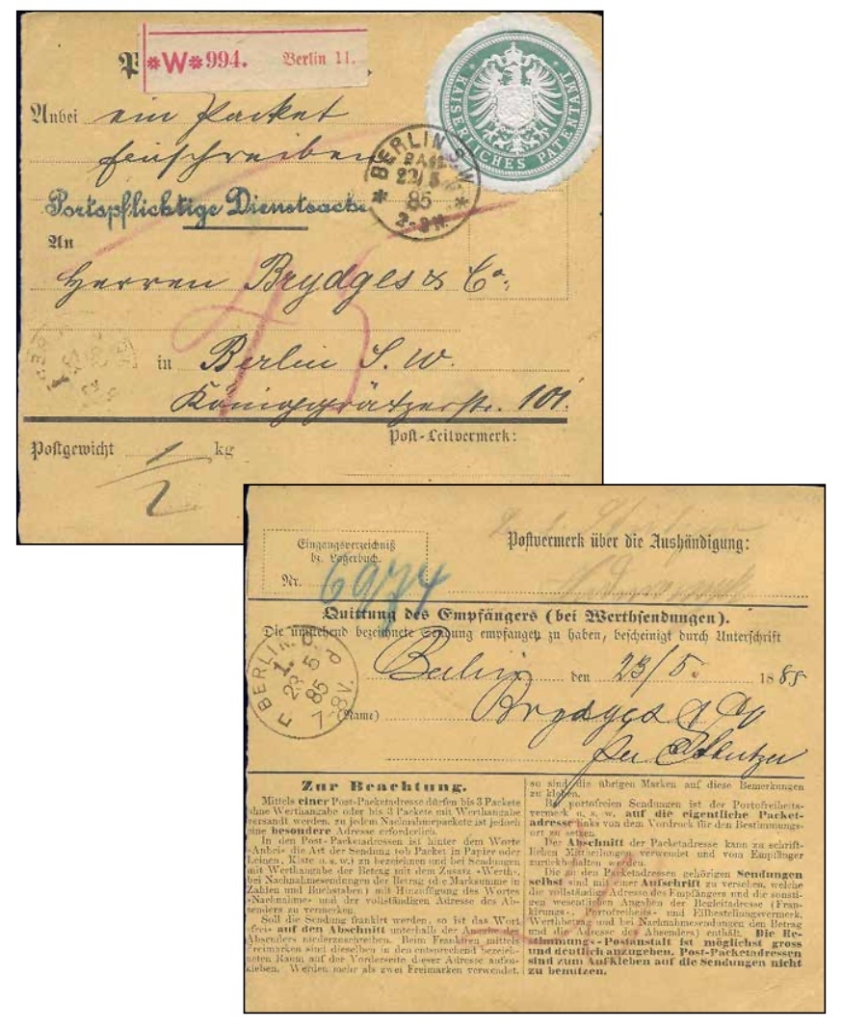 *W*994. Berlin 11.
KAISERLICHES PATENTAMT
Anbei ein Packet
Einschreiben
BERLIN S.W
22/5
85
2-3N.
Portopflichtige Dienstsache
An
Herren Brydges & Co.
in Berlin S. W.
Königgrätzerstr. 101.
45
Postgewicht 1/2 kg
Post-Leitvermerk:
Eingangsverzeichniß
bz. Lagerbuch.
Nr. 6974
Postvermerk über die Aushändigung:
Quittung des Empfängers (bei Werthsendungen).
Die umstehend bezeichnete Sendung empfangen zu haben, bescheinigt durch Unterschrift
BERLIN
23 5
85
7-8V.
Berlin den 23/5. 1885
(Name) Brydges & Co
per
Zur Beachtung.
Mittels einer Post-Packetadresse dürfen bis 3 Packete
ohne Werthangabe oder bis 3 Packete mit Werthangabe
versandt werden, zu jedem Nachnahmepackete ist jedoch
eine besondere Adresse erforderlich.
In den Post-Packetadressen ist hinter dem Worte
»Anbei« die Art der Sendung (ob Packet in Papier oder
Leinen, Kiste u. s. w.) zu bezeichnen und bei Sendungen
mit Werthangabe der Betrag mit dem Zusatz »Werth«,
bei Nachnahmesendungen der Betrag (die Marksumme in
Zahlen und Buchstaben) mit Hinzufügung des Wortes
»Nachnahme« und der vollständigen Adresse des Ab-
senders zu vermerken.
Soll die Sendung frankirt werden, so ist das Wort
»frei« auf den Abschnitt unterhalb der Angabe des
Absenders niederzuschreiben. Beim Frankiren mittels
Freimarken sind dieselben in den entsprechend bezeich-
neten Raum auf der Vorderseite dieser Adresse aufzu-
kleben. Werden mehr als zwei Freimarken verwendet,
so sind die übrigen Marken auf diese Bemerkungen
zu kleben.
Bei portofreien Sendungen ist der Portofreiheits-
vermerk u. s. w. auf die eigentliche Packet-
adresse links von dem Vordruck für den Bestimmungs-
ort zu setzen.
Der Abschnitt der Packetadresse kann zu schrift-
lichen Mittheilungen verwendet und vom Empfänger
zurückbehalten werden.
Die zu den Packetadressen gehörigen Sendungen
selbst sind mit einer Aufschrift zu versehen, welche
die vollständige Adresse des Empfängers und die sonsti-
gen wesentlichen Angaben der Begleitadresse (Fran-
kirungs-, Portofreiheits- und Eilbestellungsvermerk,
Werthbetrag und bei Nachnahmesendungen den Betrag
und die Adresse des Absenders) enthält. Die Be-
stimmungs-Postanstalt ist möglichst gross
und deutlich anzugeben. Post-Packetadressen
sind zum Aufkleben auf die Sendungen nicht
zu benutzen.